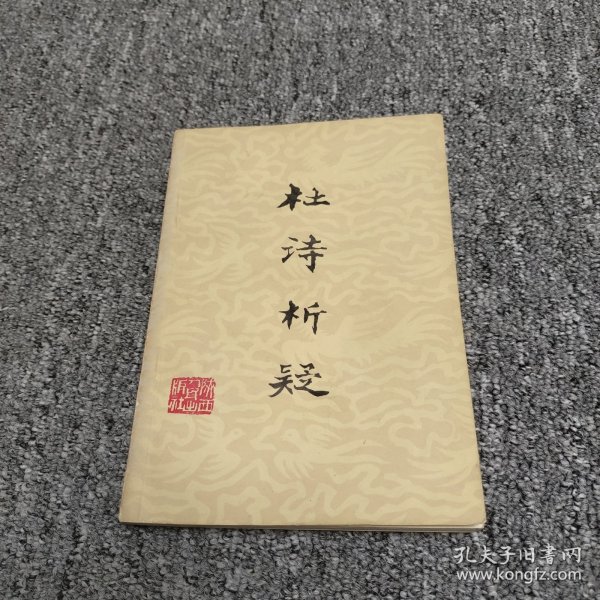 杜诗析疑
陕西
人民出
版社
孔夫子旧书网
www.kongfz.com